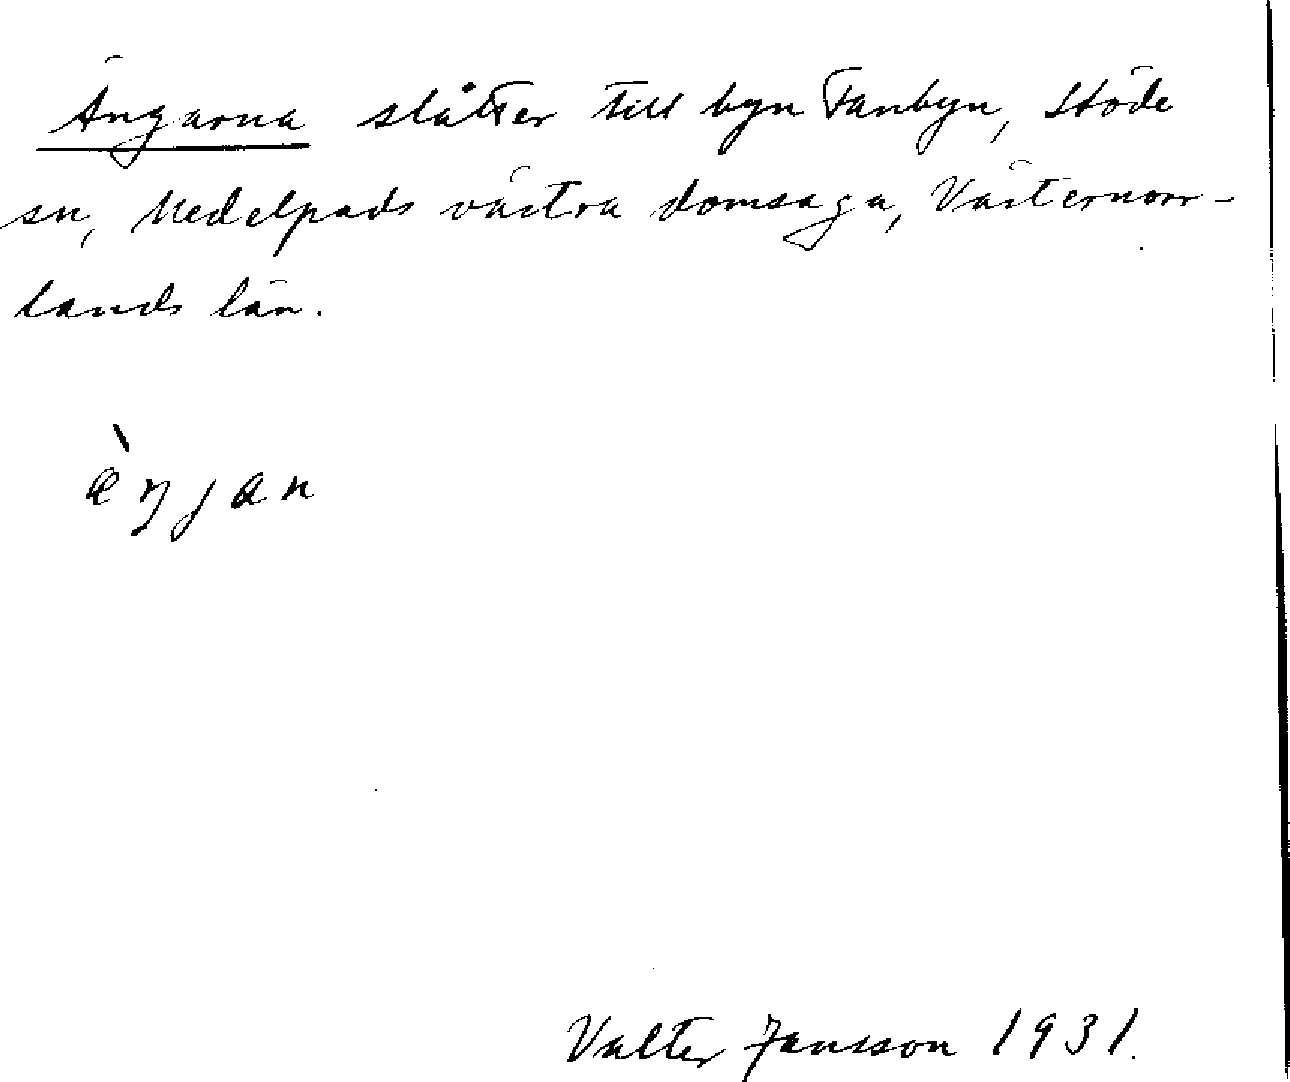 Ängarna slåtter till byn Fanbyn, Stöde
sn, Medelpads västra domsaga, Västernorr-
lands län.
æ̀ŋjan
Valter Jansson 1931.